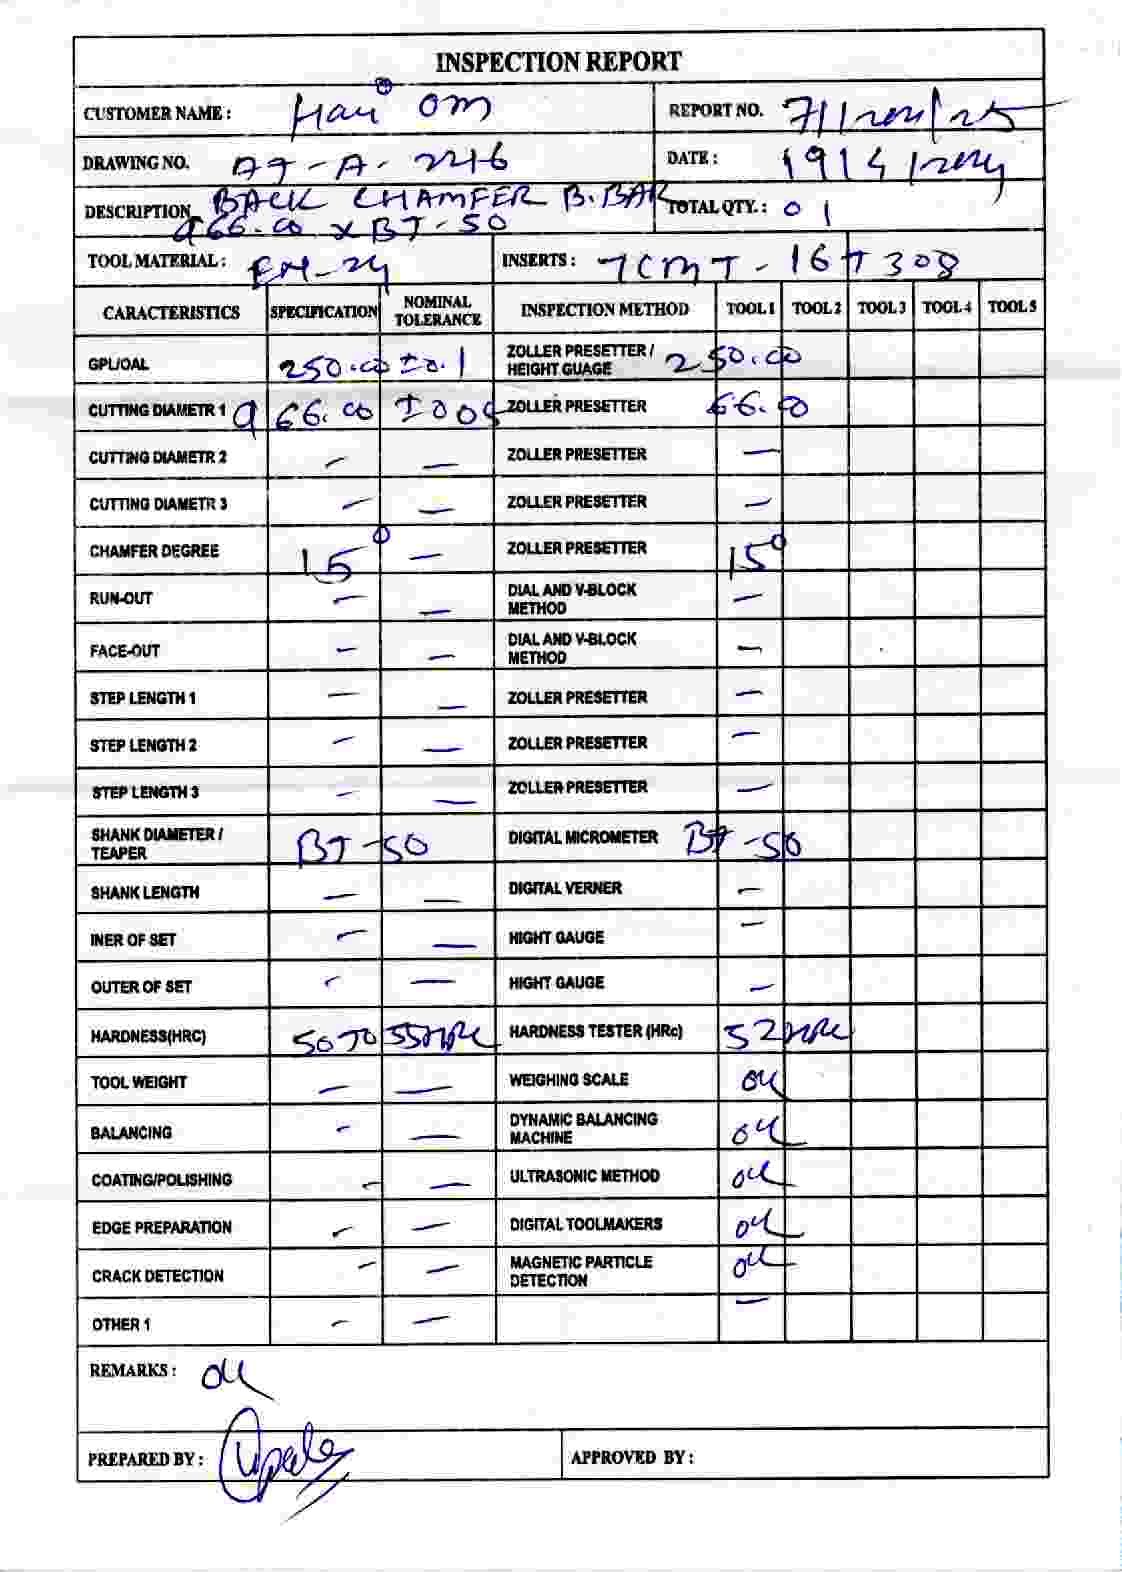 INSPECTION REPORT
CUSTOMER NAME : Hari OM REPORT NO. 71/2024/25
DRAWING NO. AJ-A-2216 DATE : 19/4/2024
DESCRIPTION BACK CHAMFER B.BAR TOTAL QTY. : 01
66.00 x BT-50
TOOL MATERIAL : EN-24 INSERTS : TCMT-16T308
CARACTERISTICS SPECIFICATION NOMINAL TOLERANCE INSPECTION METHOD TOOL 1 TOOL 2 TOOL 3 TOOL 4 TOOL 5
GPL/OAL 250.00 ±0.1 ZOLLER PRESETTER / HEIGHT GUAGE 250.00
CUTTING DIAMETR 1 66.00 ±005 ZOLLER PRESETTER 66.00
CUTTING DIAMETR 2 - - ZOLLER PRESETTER -
CUTTING DIAMETR 3 - - ZOLLER PRESETTER -
CHAMFER DEGREE 15° - ZOLLER PRESETTER 15°
RUN-OUT - - DIAL AND V-BLOCK METHOD -
FACE-OUT - - DIAL AND V-BLOCK METHOD -
STEP LENGTH 1 - - ZOLLER PRESETTER -
STEP LENGTH 2 - - ZOLLER PRESETTER -
STEP LENGTH 3 - - ZOLLER PRESETTER -
SHANK DIAMETER / TEAPER BT-50 DIGITAL MICROMETER BT-50
SHANK LENGTH - - DIGITAL VERNER -
INER OF SET - - HIGHT GAUGE -
OUTER OF SET - - HIGHT GAUGE -
HARDNESS(HRC) 50 TO 55 HRC HARDNESS TESTER (HRc) 52 HRC
TOOL WEIGHT - - WEIGHING SCALE OK
BALANCING - - DYNAMIC BALANCING MACHINE OK
COATING/POLISHING - - ULTRASONIC METHOD OK
EDGE PREPARATION - - DIGITAL TOOLMAKERS OK
CRACK DETECTION - - MAGNETIC PARTICLE DETECTION OK
OTHER 1 - - -
REMARKS : OK
PREPARED BY : APPROVED BY :